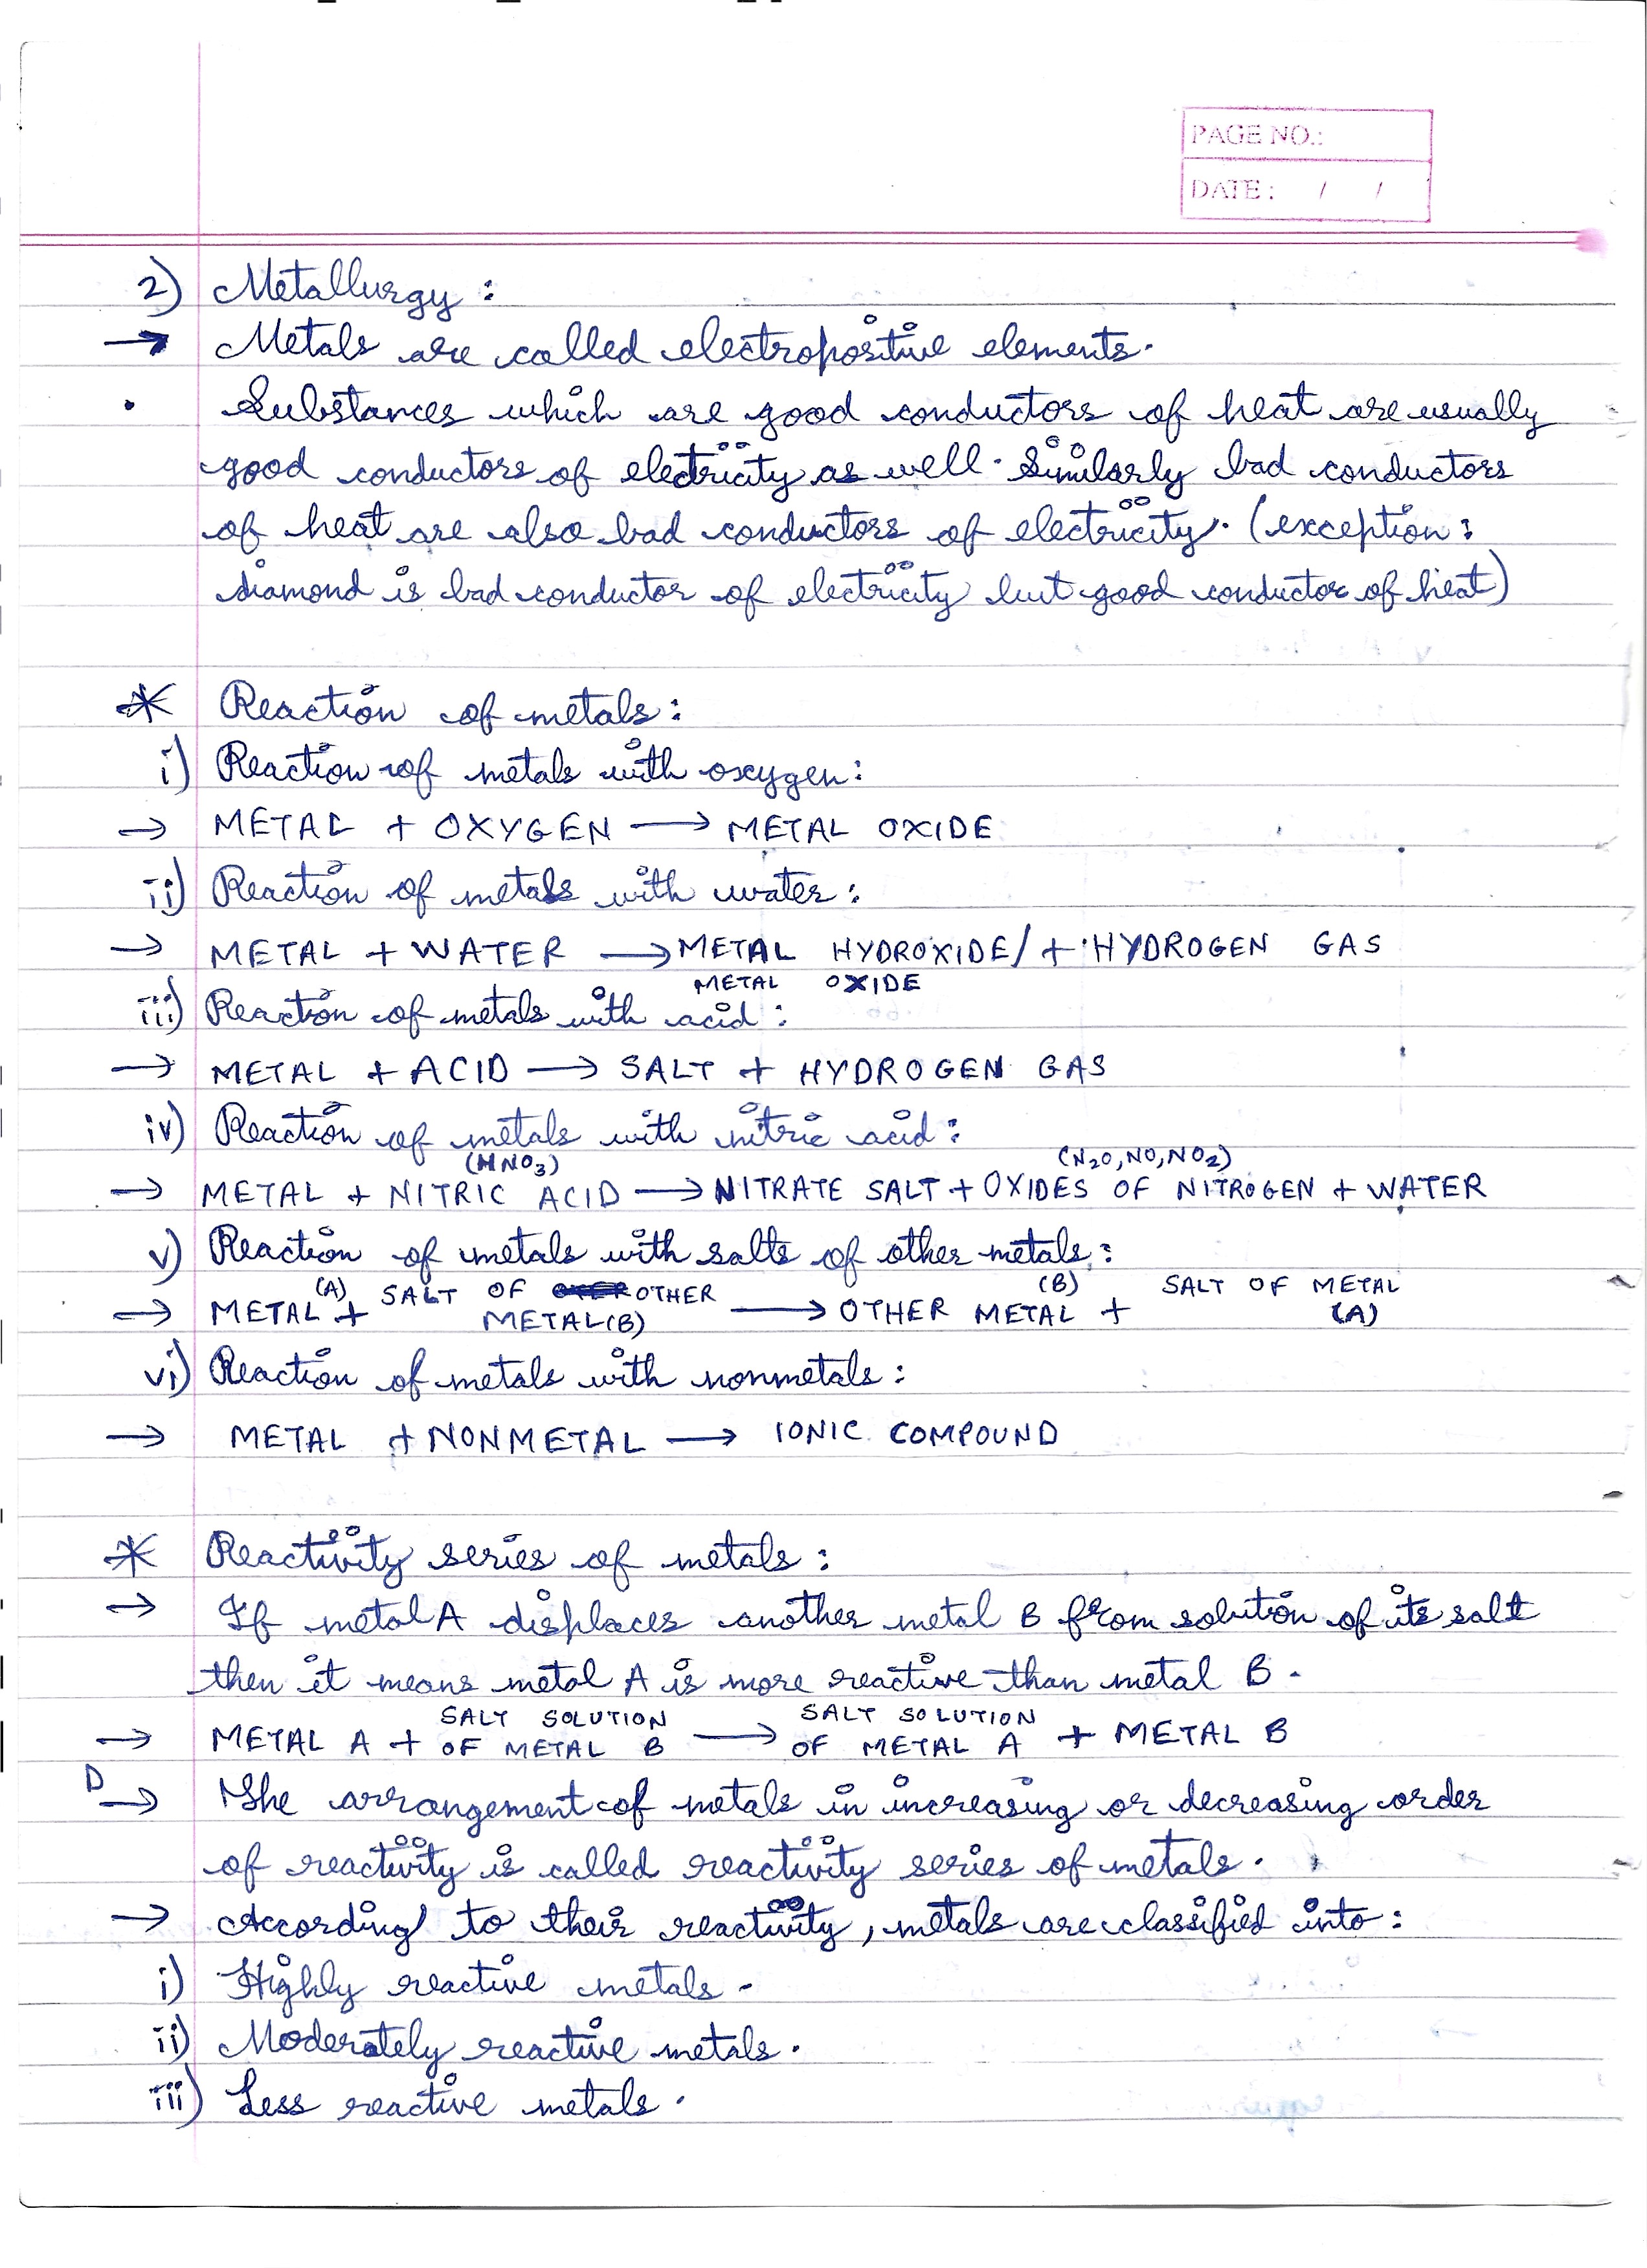 PAGE NO.:
DATE: / /
2) Metallurgy :
→ Metals are called electropositive elements.
• Substances which are good conductors of heat are usually
good conductors of electricity as well. Similarly bad conductors
of heat are also bad conductors of electricity. (exception:
diamond is bad conductor of electricity but good conductor of heat)
* Reaction of metals:
i) Reaction of metals with oxygen:
→ METAL + OXYGEN ⟶ METAL OXIDE
ii) Reaction of metals with water:
→ METAL + WATER ⟶ METAL HYDROXIDE/ + HYDROGEN GAS
METAL OXIDE
iii) Reaction of metals with acid:
→ METAL + ACID ⟶ SALT + HYDROGEN GAS
iv) Reaction of metals with nitric acid:
(HNO3) (N2O, NO, NO2)
→ METAL + NITRIC ACID ⟶ NITRATE SALT + OXIDES OF NITROGEN + WATER
v) Reaction of metals with salts of other metals:
(A) SALT OF OTHER (B) SALT OF METAL
→ METAL + METAL(B) ⟶ OTHER METAL + (A)
vi) Reaction of metals with nonmetals:
→ METAL + NONMETAL ⟶ IONIC COMPOUND
* Reactivity series of metals:
→ If metal A displaces another metal B from solution of its salt
then it means metal A is more reactive than metal B.
SALT SOLUTION SALT SOLUTION
→ METAL A + OF METAL B ⟶ OF METAL A + METAL B
D → The arrangement of metals in increasing or decreasing order
of reactivity is called reactivity series of metals.
→ According to their reactivity, metals are classified into:
i) Highly reactive metals.
ii) Moderately reactive metals.
iii) Less reactive metals.